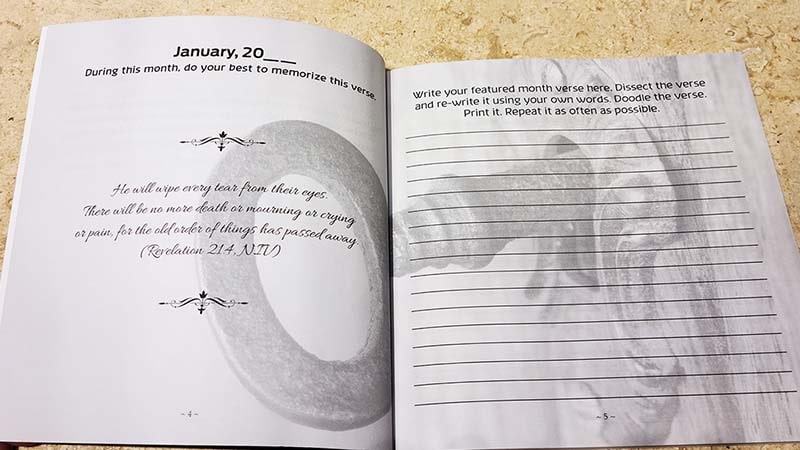 January, 20__
During this month, do your best to memorize this verse.
He will wipe every tear from their eyes.
There will be no more death or mourning or crying
or pain, for the old order of things has passed away.
(Revelation 21:4, NIV)
~ 4 ~
Write your featured month verse here. Dissect the verse
and re-write it using your own words. Doodle the verse.
Print it. Repeat it as often as possible.
~ 5 ~